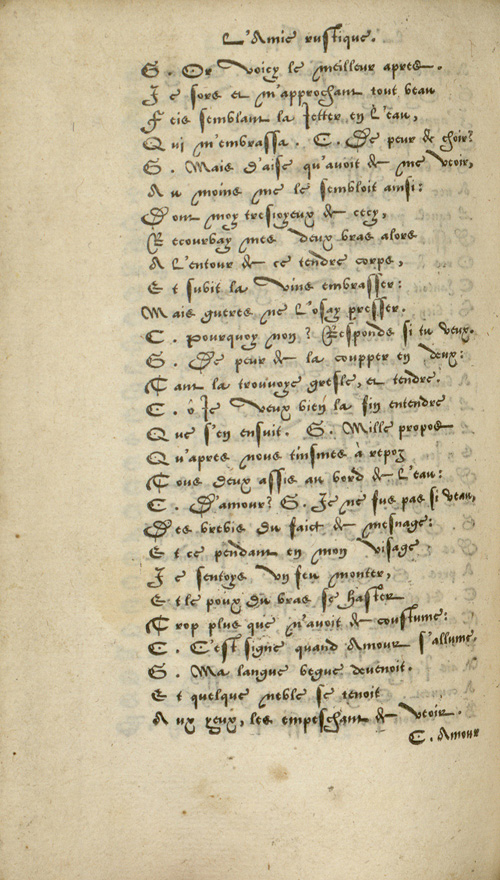 L'Amie rustique.
G. Or voicy le meilleur apres.
Je sors et m'approchant tout beau
Feis semblant la Jetter en L'eau,
Qui m'embrassa. C. De peur de choir?
G. Mais d'aise qu'avoit de me veoir,
Au moins me le sembloit ainsi:
Dont moy tresioyeux de cecy,
Recourbay mes deux bras alors
A L'entour de ce tendre corps,
Et subit la vins embrasser:
Mais gueres ne L'osay presser.
C. Pourquoy non? Responds si tu veux.
G. De peur de la coupper en deux:
Tant la trouvoye gresle, et tendre.
C. ô Je veux bien la fin entendre
Que s'en ensuit. G. Mille propos
Qu'apres nous tinsmes à repoz
Tous deux assis au bord de L'eau:
C. D'amour? G. Je ne fus pas si veau,
Des brebis du faict de mesnage:
Et ce pendant en mon visage
Je sentoye un feu monter,
Et le poux du bras se haster
Trop plus que n'avoit de coustume:
C. C'est signe quand Amour s'allume.
G. Ma langue begue devenoit.
Et quelque neble se tenoit
Aux yeux, les empeschant de veoir.
C. Amour